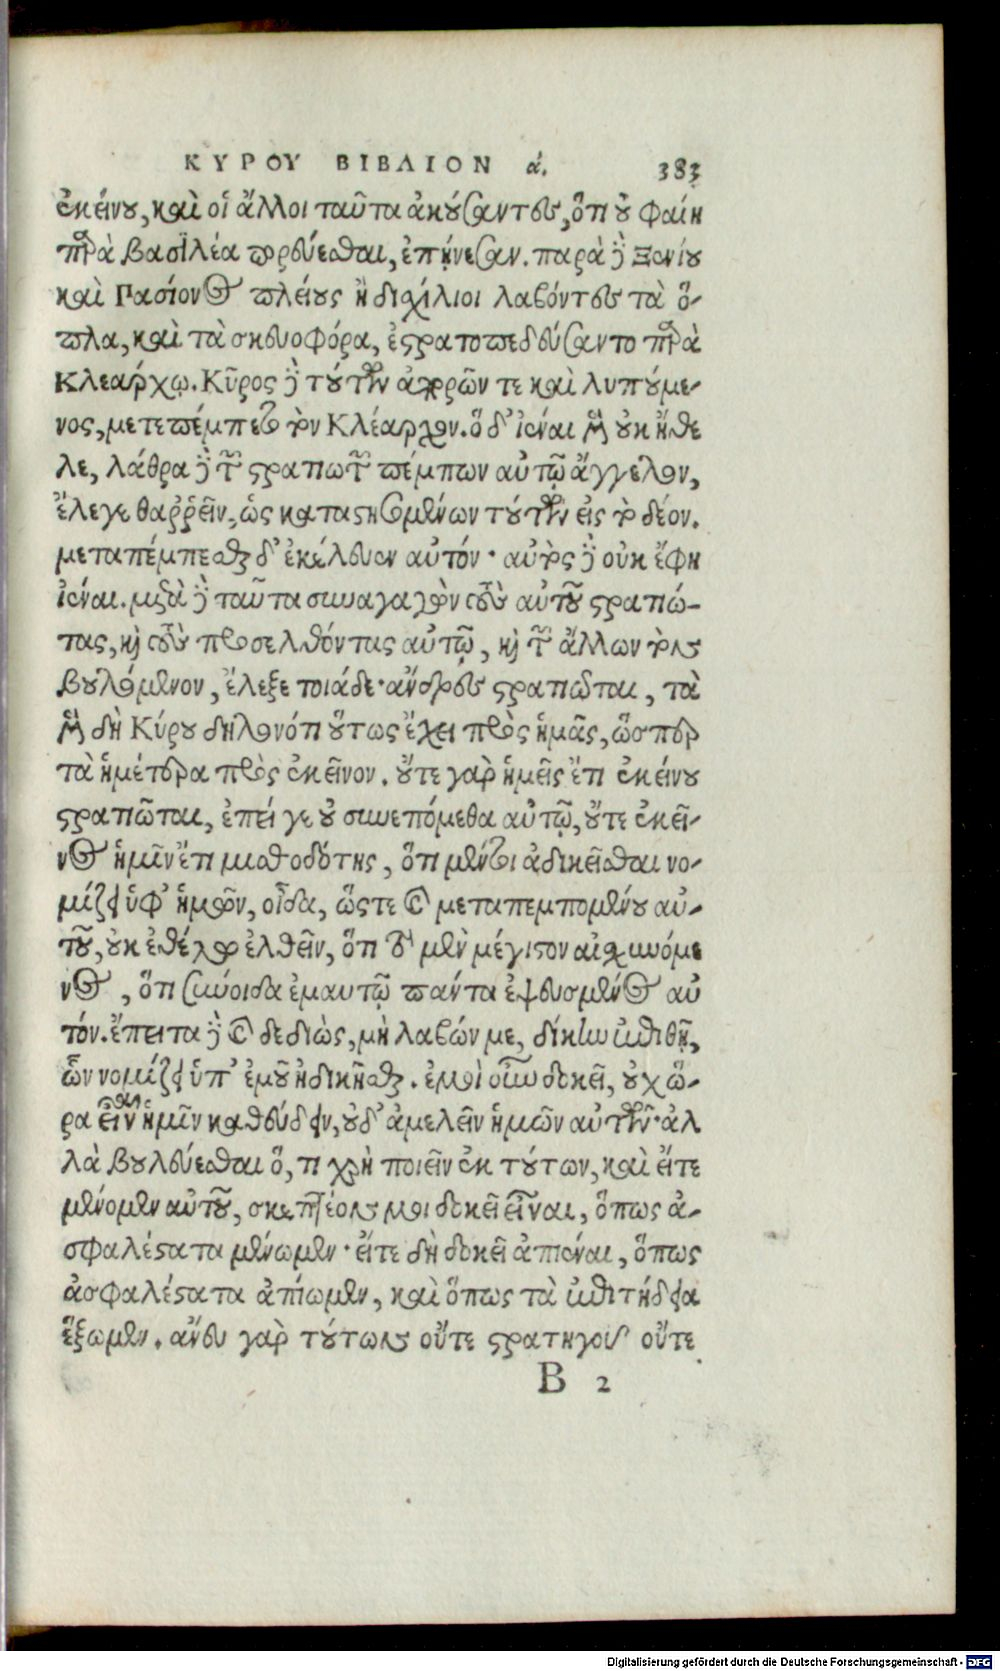 ΚΥΡΟΥ ΒΙΒΛΙΟΝ ά. 383
ἐκείνου, καὶ οἱ ἄλλοι ταῦτα ἀκούσαντες, ὅτι οὐ φαίη
παρὰ βασιλέα πορεύεσθαι, ἐπῄνεσαν. παρὰ δὲ Ξενίου
καὶ Πασίονος πλείους ἢ διχίλιοι λαβόντες τὰ ὅ-
πλα, καὶ τὰ σκευοφόρα, ἐστρατοπεδεύσαντο παρὰ
Κλεάρχῳ. Κῦρος δὲ τούτοις ἀπορῶν τε καὶ λυπούμε-
νος, μετεπέμπετο τὸν Κλέαρχον. ὁ δ' ἰέναι μὲν οὐκ ἤθε
λε, λάθρα δὲ τῶν στρατιωτῶν πέμπων αὐτῷ ἄγγελον,
ἔλεγε θαῤῥεῖν, ὡς καταστησομένων τούτων εἰς τὸ δέον.
μεταπέμπεσθαι δ' ἐκέλευεν αὐτόν· αὐτὸς δὲ οὐκ ἔφη
ἰέναι. μετὰ δὲ ταῦτα συναγαγὼν τοὺς αὐτοῦ στρατιώ-
τας, καὶ τοὺς προσελθόντας αὐτῷ, καὶ τῶν ἄλλων τὸν
βουλόμενον, ἔλεξε τοιάδε· ἄνδρες στρατιῶται, τὰ
μὲν δὴ Κύρου δηλονότι οὕτως ἔχει πρὸς ἡμᾶς, ὥσπερ
τὰ ἡμέτερα πρὸς ἐκεῖνον. οὔτε γὰρ ἡμεῖς ἔτι ἐκείνου
στρατιῶται, ἐπεί γε οὐ συνεπόμεθα αὐτῷ, οὔτε ἐκεῖ-
νος ἡμῖν ἔτι μισθοδότης, ὅτι μέντοι ἀδικεῖσθαι νο-
μίζει ὑφ' ἡμῶν, οἶδα, ὥστε καὶ μεταπεμπομένου αὐ-
τοῦ, οὐκ ἐθέλω ἐλθεῖν, ὅτι τὸ μὲν μέγιστον αἰσχυνόμε
νος, ὅτι σύνοιδα ἐμαυτῷ πάντα ἐψευσμένος αὐ
τόν. ἔπειτα δὲ καὶ δεδιὼς, μὴ λαβών με, δίκην ἐπιθῇ,
ὧν νομίζει ὑπ' ἐμοῦ ἠδικῆσθαι. ἐμοὶ οὖν δοκεῖ, οὐχ ὥ-
ρα εἶναι ἡμῖν καθεύδειν, οὐδ' ἀμελεῖν ἡμῶν αὐτῶν· ἀλ
λὰ βουλεύεσθαι ὅ, τι χρὴ ποιεῖν ἐκ τούτων, καὶ εἴτε
μένομεν αὐτοῦ, σκεπτέον μοι δοκεῖ εἶναι, ὅπως ἀ-
σφαλέστατα μένωμεν· εἴτε δὴ δοκεῖ ἀπιέναι, ὅπως
ἀσφαλέστατα ἀπίωμεν, καὶ ὅπως τὰ ἐπιτήδεια
ἕξωμεν. ἄνευ γὰρ τούτων οὔτε στρατηγοῦ οὔτε
B 2
Digitalisierung gefördert durch die Deutsche Forschungsgemeinschaft - DFG